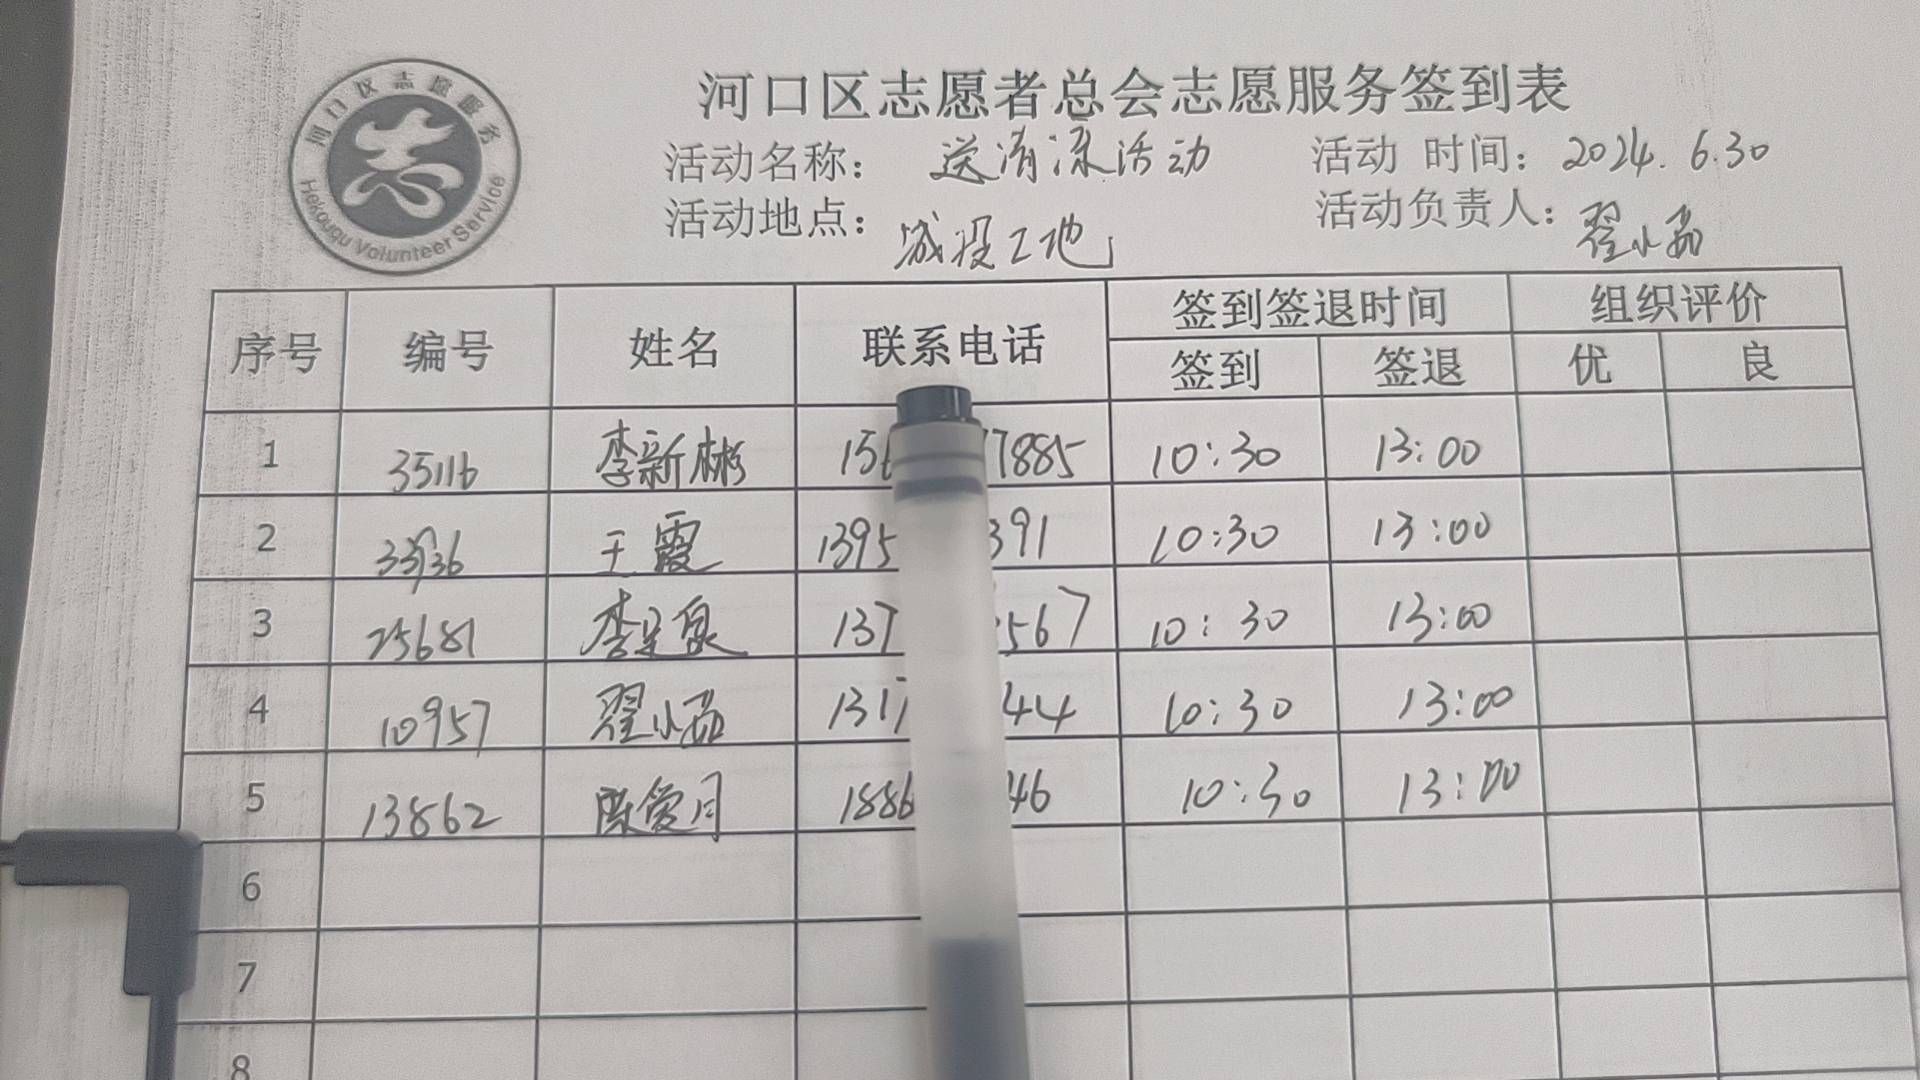 河口区志愿服务
Hekouqu Volunteer Service
河口区志愿者总会志愿服务签到表
活动名称： 送清凉活动 活动 时间： 2024.6.30
活动地点： 城投工地 活动负责人： 翟小茹
序号 编号 姓名 联系电话 签到签退时间 组织评价
签到 签退 优 良
1 35116 李新彬 15 7885 10:30 13:00
2 王霞 1395 391 10:30 13:00
3 25681 李 137 567 10:30 13:00
4 10957 翟小茹 131 44 10:30 13:00
5 13862 陈爱月 1886 46 10:30 13:00
6
7
8